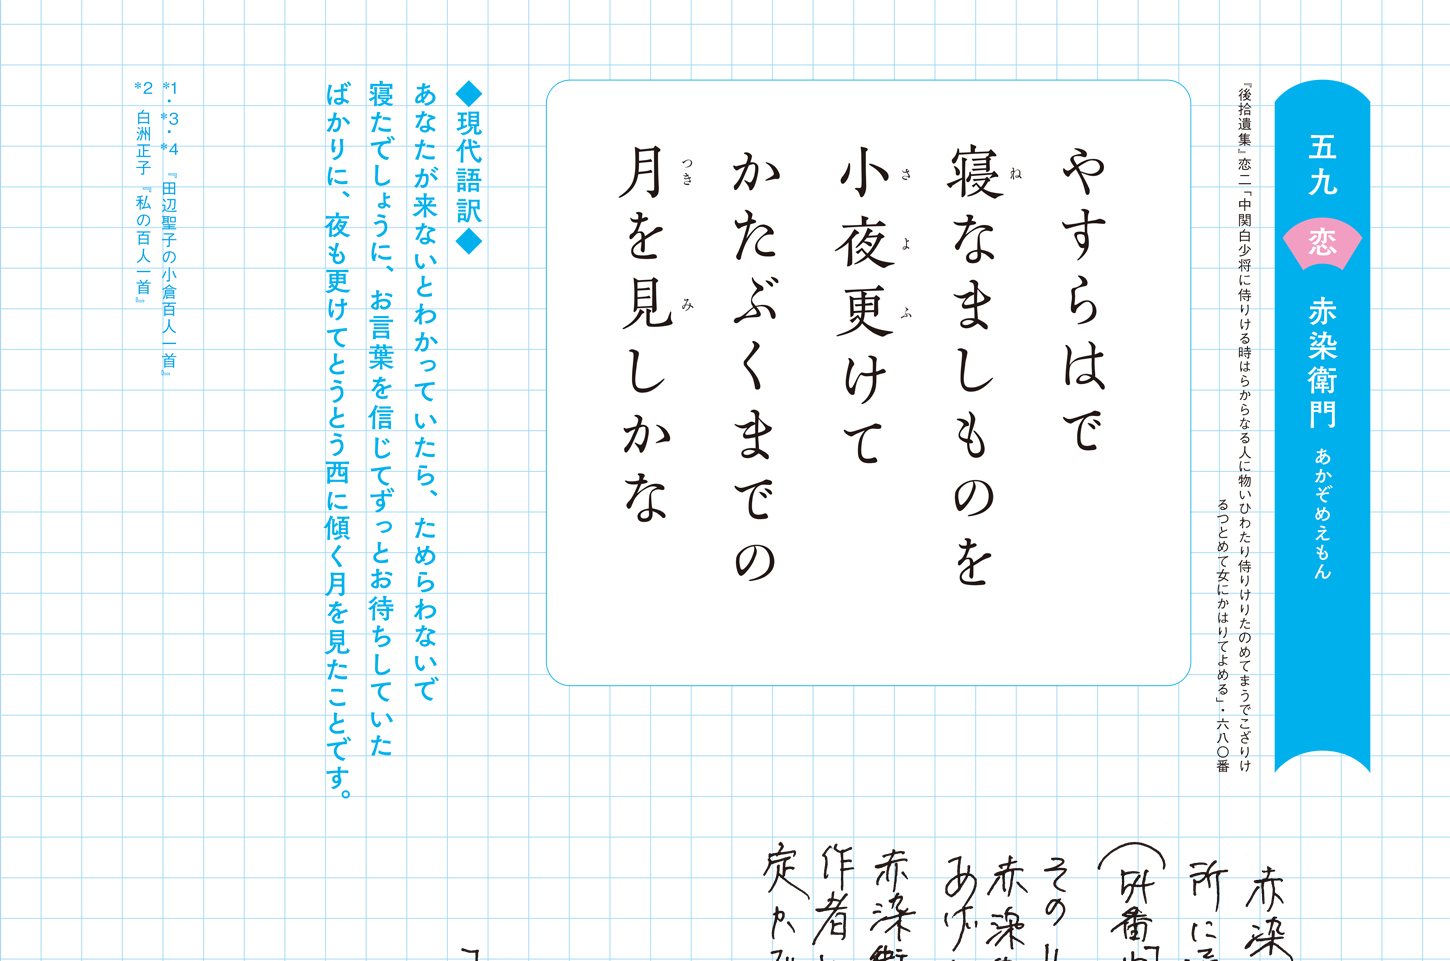 五九 恋 赤染衛門 あかぞめえもん
『後拾遺集』恋二「中関白少将に侍りける時はらからなる人に物いひわたり侍りけりたのめてまうでこざりけ
るつとめて女にかはりてよめる」・六八〇番
やすらはで
寝なましものを
ね
小夜更けて
さよふ
かたぶくまでの
月を見しかな
つきみ
◆現代語訳◆
あなたが来ないとわかっていたら、ためらわないで
寝たでしょうに、お言葉を信じてずっとお待ちしていた
ばかりに、夜も更けてとうとう西に傾く月を見たことです。
*1・*3・*4 『田辺聖子の小倉百人一首』
*2 白洲正子『私の百人一首』
赤染
所に
番
その
赤染
あげ
赤染衛
作者
定か